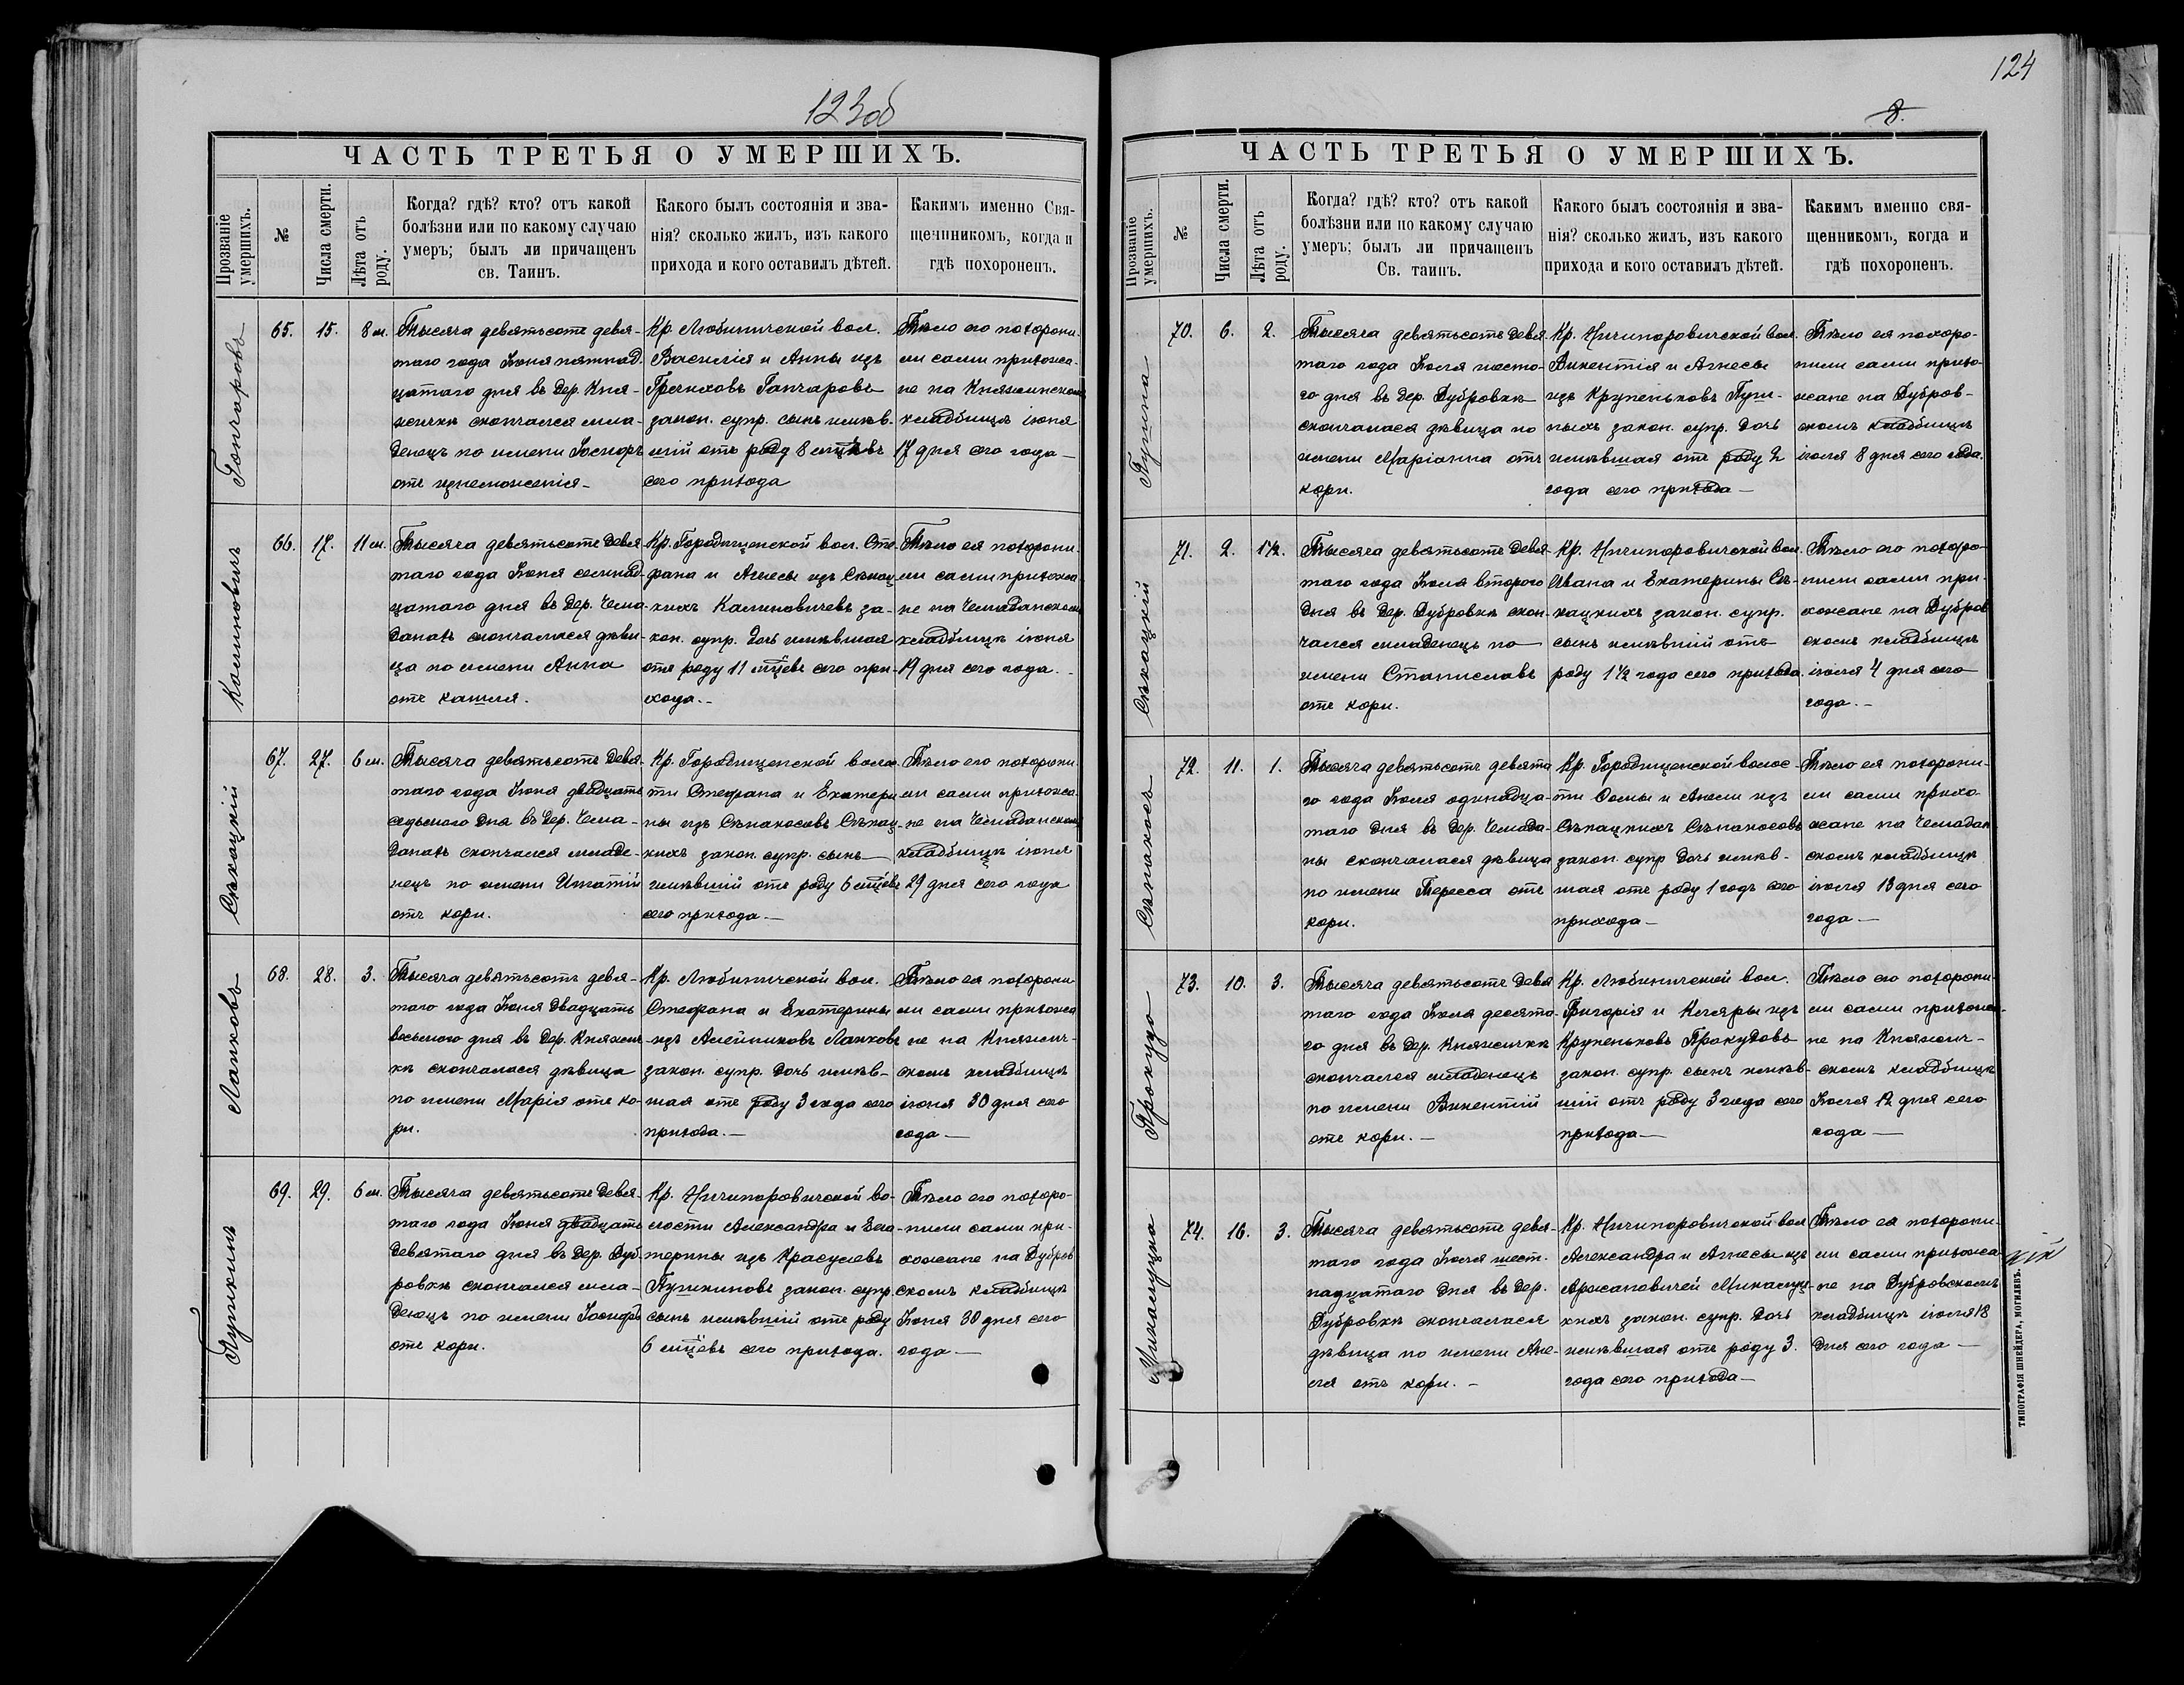 123об
ЧАСТЬ ТРЕТЬЯ О УМЕРШИХЪ.
Прозваніе умершихъ.
№
Числа смерти.
Лѣта отъ роду.
Когда? гдѣ? кто? отъ какой
болѣзни или по какому случаю
умеръ; былъ ли причащенъ
св. Таинъ.
Какого былъ состоянія и зва-
нія? сколько жилъ, изъ какого
прихода и кого оставилъ дѣтей.
Какимъ именно Свя-
щенникомъ, когда и
гдѣ похороненъ.
Гончаровъ
65.
15.
8 м.
Тысяча девятьсотъ девя-
таго года Іюня пятнад-
цатаго дня въ дер. Кня-
жичкѣ скончался мла-
денецъ по имени Іосифъ
отъ изнеможенія-
Кр. Любиничской вол.
Василія и Анны изъ
Ганчаровъ
закон. супр. сынъ имѣв-
шій отъ роду 8 мцѣвъ
сего прихода
Тѣло его похорони-
ли сами прихожа-
не на Княжинскомъ
кладбищѣ іюня
17 дня сего года-
Калиновичъ
66.
17.
11 м.
Тысяча девятьсотъ девя
таго года Іюня семнад-
цатаго дня въ дер. Чема-
данахъ скончалася дѣви-
ца по имени Анна
отъ кашля.
Кр. Городищенской вол. Сте-
фана и Агнесы изъ Сѣкац-
кихъ Калиновичевъ за-
кон. супр. дочь имѣвшая
отъ роду 11 мцѣвъ сего при-
хода.-
Тѣло ея похорони-
ли сами прихожа-
не на Чемаданскомъ
кладбищѣ іюня
19 дня сего года.-
Сѣкацкій
67.
27.
6 м.
Тысяча девятьсотъ девя-
таго года Іюня двадцать
седьмого дня въ дер. Чема-
данахъ скончался младе-
нецъ по имени Игнатій
отъ кори.
Кр. Городищенской волос-
ти Стефана и Екатери
ны изъ Сѣнакосовъ Сѣкац-
кихъ закон. супр. сынъ-
имѣвшій отъ роду 6 мцѣвъ
сего прихода.-
Тѣло его похорони-
ли сами прихожа-
не на Чемаданскомъ
кладбищѣ іюня
29 дня сего года
Лапковъ
68.
28.
3.
Тысяча девятьсотъ девя-
таго года Іюня двадцать
восьмого дня въ дер. Княжич-
кѣ скончалася дѣвица
по имени Марія отъ ко-
ри.
Кр. Любиничской вол.
Стефана и Екатерины
изъ Алейниковъ Лапковъ
закон. супр. дочь имѣв-
шая отъ роду 3 года сего
прихода.-
Тѣло ея похорони
ли сами прихожа
не на Княжич-
скомъ кладбищѣ
іюня 30 дня сего
года-
Пушкинъ
69.
29.
6 м.
Тысяча девятьсотъ девя-
таго года Іюня двадцать
девятаго дня въ дер. Дуб-
ровкѣ скончался мла-
денецъ по имени Іосифъ
отъ кори.
Кр. Ничипоровичской во-
лости Александра и Ека-
терины изъ Красулевъ
Пушкиновъ закон. супр.
сынъ имѣвшій отъ роду
6 мцѣвъ сего прихода.
Тѣло его похоро-
нили сами при-
хожане на Дубров
скомъ кладбищѣ
Іюня 30 дня сего
года-
124
8.
ЧАСТЬ ТРЕТЬЯ О УМЕРШИХЪ.
Прозваніе умершихъ.
№
Числа смерти.
Лѣта отъ роду.
Когда? гдѣ? кто? отъ какой
болѣзни или по какому случаю
умеръ; былъ ли причащенъ
Св. таинъ.
Какого былъ состоянія и зва-
нія? сколько жилъ, изъ какого
прихода и кого оставилъ дѣтей.
Какимъ именно свя-
щенникомъ, когда и
гдѣ похороненъ.
70.
6.
2.
Тысяча девятьсотъ девя
таго года Іюля шесто-
го дня въ дер. Дубровкѣ
скончалася дѣвица по
имени Маріанна отъ
кори.
Кр. Ничипоровичской вол.
Викентія и Агнесы
изъ Крупеньковъ
ныхъ закон. супр. дочь
имѣвшая отъ роду 2
года сего прихода-
Тѣло ея похоро-
нили сами прихо-
жане на Дубров-
скомъ кладбищѣ
іюля 8 дня сего года.
Сѣкацкій
71.
2.
1½.
Тысяча девятьсотъ девя-
таго года Іюля второго
дня въ дер. Дубровкѣ скон-
чался младенецъ по
имени Станиславъ
отъ кори.
Кр. Ничипоровичской вол.
Ивана и Екатерины Сѣ-
кацкихъ закон. супр.
сынъ имѣвшій отъ
роду 1½ года сего прихода.
Тѣло его похоро-
нили сами при-
хожане на Дубров
скомъ кладбищѣ
іюля 4 дня сего
года.-
Сѣнакосъ
72.
11.
1.
Тысяча девятьсотъ девята
го года Іюля одинадца-
таго дня въ дер. Чемада-
ны скончалася дѣвица
по имени Тересса отъ
кори.
Кр. Городищенской волос-
ти Ѳомы и Анны изъ
Сѣкацкихъ Сѣнакосовъ
закон. супр дочь имѣв-
шая отъ роду 1 годъ сего
прихода-
Тѣло ея похорони-
ли сами прихо
жане на Чемадан
скомъ кладбищѣ
іюля 13 дня сего
года-
Прокудо
73.
10.
3.
Тысяча девятьсотъ девя
таго года Іюля десята-
го дня въ дер. Княжичкѣ
скончался младенецъ
по имени Викентій
отъ кори.-
Кр. Любиничской вол.
Григорія и Кляры изъ
Крупеньковъ Прокудовъ
закон. супр. сынъ имѣв-
шій отъ роду 3 года сего
прихода-
Тѣло его похорони-
ли сами прихожа-
не на Княжич-
скомъ кладбищѣ
Іюля 12 дня сего
года-
74.
16.
3.
Тысяча девятьсотъ девя-
таго года Іюля шест-
надцатаго дня въ дер.
Дубровкѣ скончалася
дѣвица по имени
отъ кори.-
Кр. Ничипоровичской вол
Александра и Агнесы изъ
закон. супр. дочь
имѣвшая отъ роду 3.
года сего прихода-
Тѣло ея похорони-
ли сами прихожа
не на Дубровскомъ
кладбищѣ іюля 18
дня сего года-
ТИПОГРАФІЯ ШНЕЙДЕРА, МОГИЛЕВЪ.